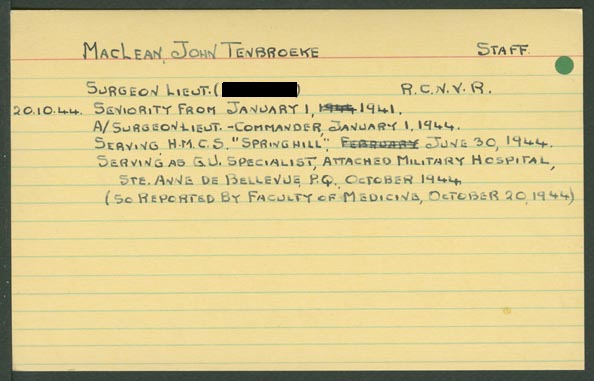 MacLean, John Tenbroeke Staff.
Surgeon Lieut. ( ) R.C.N.V.R.
20.10.44. Seniority from January 1, 1944 1941.
A/Surgeon Lieut.-Commander, January 1, 1944.
Serving H.M.C.S. "Springhill", February June 30, 1944.
Serving as G.U. Specialist, Attached Military Hospital,
Ste. Anne de Bellevue, P.Q., October 1944
(So reported by Faculty of Medicine, October 20, 1944)